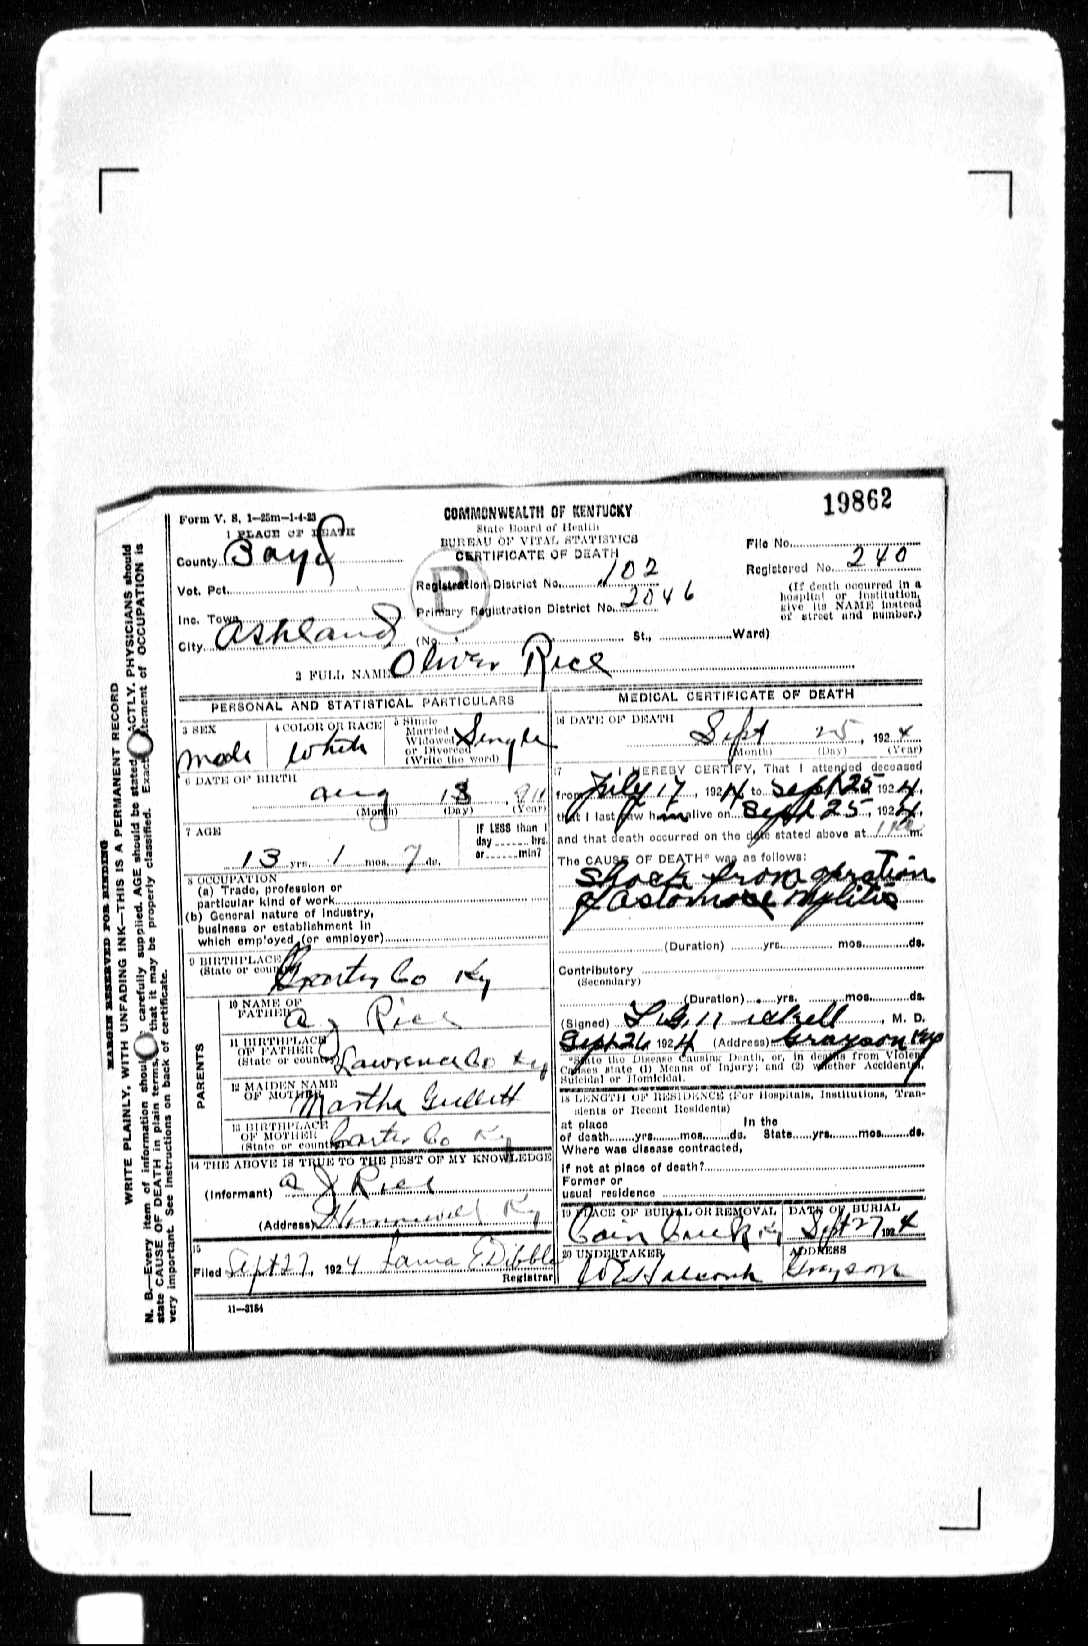 19862
Form V. S. 1—25m—1-4-23
COMMONWEALTH OF KENTUCKY
State Board of Health
BUREAU OF VITAL STATISTICS
CERTIFICATE OF DEATH
1 PLACE OF DEATH
County Boyd
File No.
Registered No. 240
Vot. Pct.
Registration District No. 102
(If death occurred in a hospital or institution, give its NAME instead of street and number.)
Inc. Town
Primary Registration District No. 2046
City Ashland (No. St., Ward)
2 FULL NAME Oliver Rice
PERSONAL AND STATISTICAL PARTICULARS
3 SEX Male
4 COLOR OR RACE White
5 Single Married Widowed or Divorced (Write the word) Single
6 DATE OF BIRTH
Aug 18, 911
(Month) (Day) (Year)
7 AGE
13 yrs. 1 mos. 7 ds.
If LESS than 1 day hrs. or min?
8 OCCUPATION
(a) Trade, profession or
particular kind of work
(b) General nature of Industry,
business or establishment in
which employed (or employer)
9 BIRTHPLACE
(State or country) Carter Co Ky
PARENTS
10 NAME OF FATHER A J Rice
11 BIRTHPLACE OF FATHER (State or country) Lawrence Co Ky
12 MAIDEN NAME OF MOTHER Martha Gullett
13 BIRTHPLACE OF MOTHER (State or country) Carter Co Ky
14 THE ABOVE IS TRUE TO THE BEST OF MY KNOWLEDGE
(Informant) A J Rice
(Address) Ky
15
Filed Sept 27, 1924 Laura E. Dibble
Registrar
11—3184
MEDICAL CERTIFICATE OF DEATH
16 DATE OF DEATH
Sept 25, 1924
(Month) (Day) (Year)
17 I HEREBY CERTIFY, That I attended deceased
from July 17, 1924, to Sept 25 1924,
that I last saw him alive on Sept 25, 1924,
and that death occurred on the date stated above at m.
The CAUSE OF DEATH* was as follows:
Shock from operation
of
(Duration) yrs. mos. ds.
Contributory
(Secondary)
(Duration) yrs. mos. ds.
(Signed) M. D.
Sept 26 1924 (Address) Grayson Ky
*State the Disease Causing Death, or, in deaths from Violent
Causes state (1) Means of Injury; and (2) whether Accidental,
Suicidal or Homicidal.
18 LENGTH OF RESIDENCE (For Hospitals, Institutions, Tran-
sients or Recent Residents)
at place In the
of death yrs. mos. ds. State yrs. mos. ds.
Where was disease contracted,
if not at place of death?
Former or
usual residence
19 PLACE OF BURIAL OR REMOVAL
Cain Creek Ky
DATE OF BURIAL
Sept 27 1924
20 UNDERTAKER
ADDRESS
Grayson
MARGIN RESERVED FOR BINDING
WRITE PLAINLY, WITH UNFADING INK—THIS IS A PERMANENT RECORD
N. B.—Every item of information should be carefully supplied. AGE should be stated EXACTLY. PHYSICIANS should
state CAUSE OF DEATH in plain terms, that it may be properly classified. Exact statement of OCCUPATION is
very important. See instructions on back of certificate.